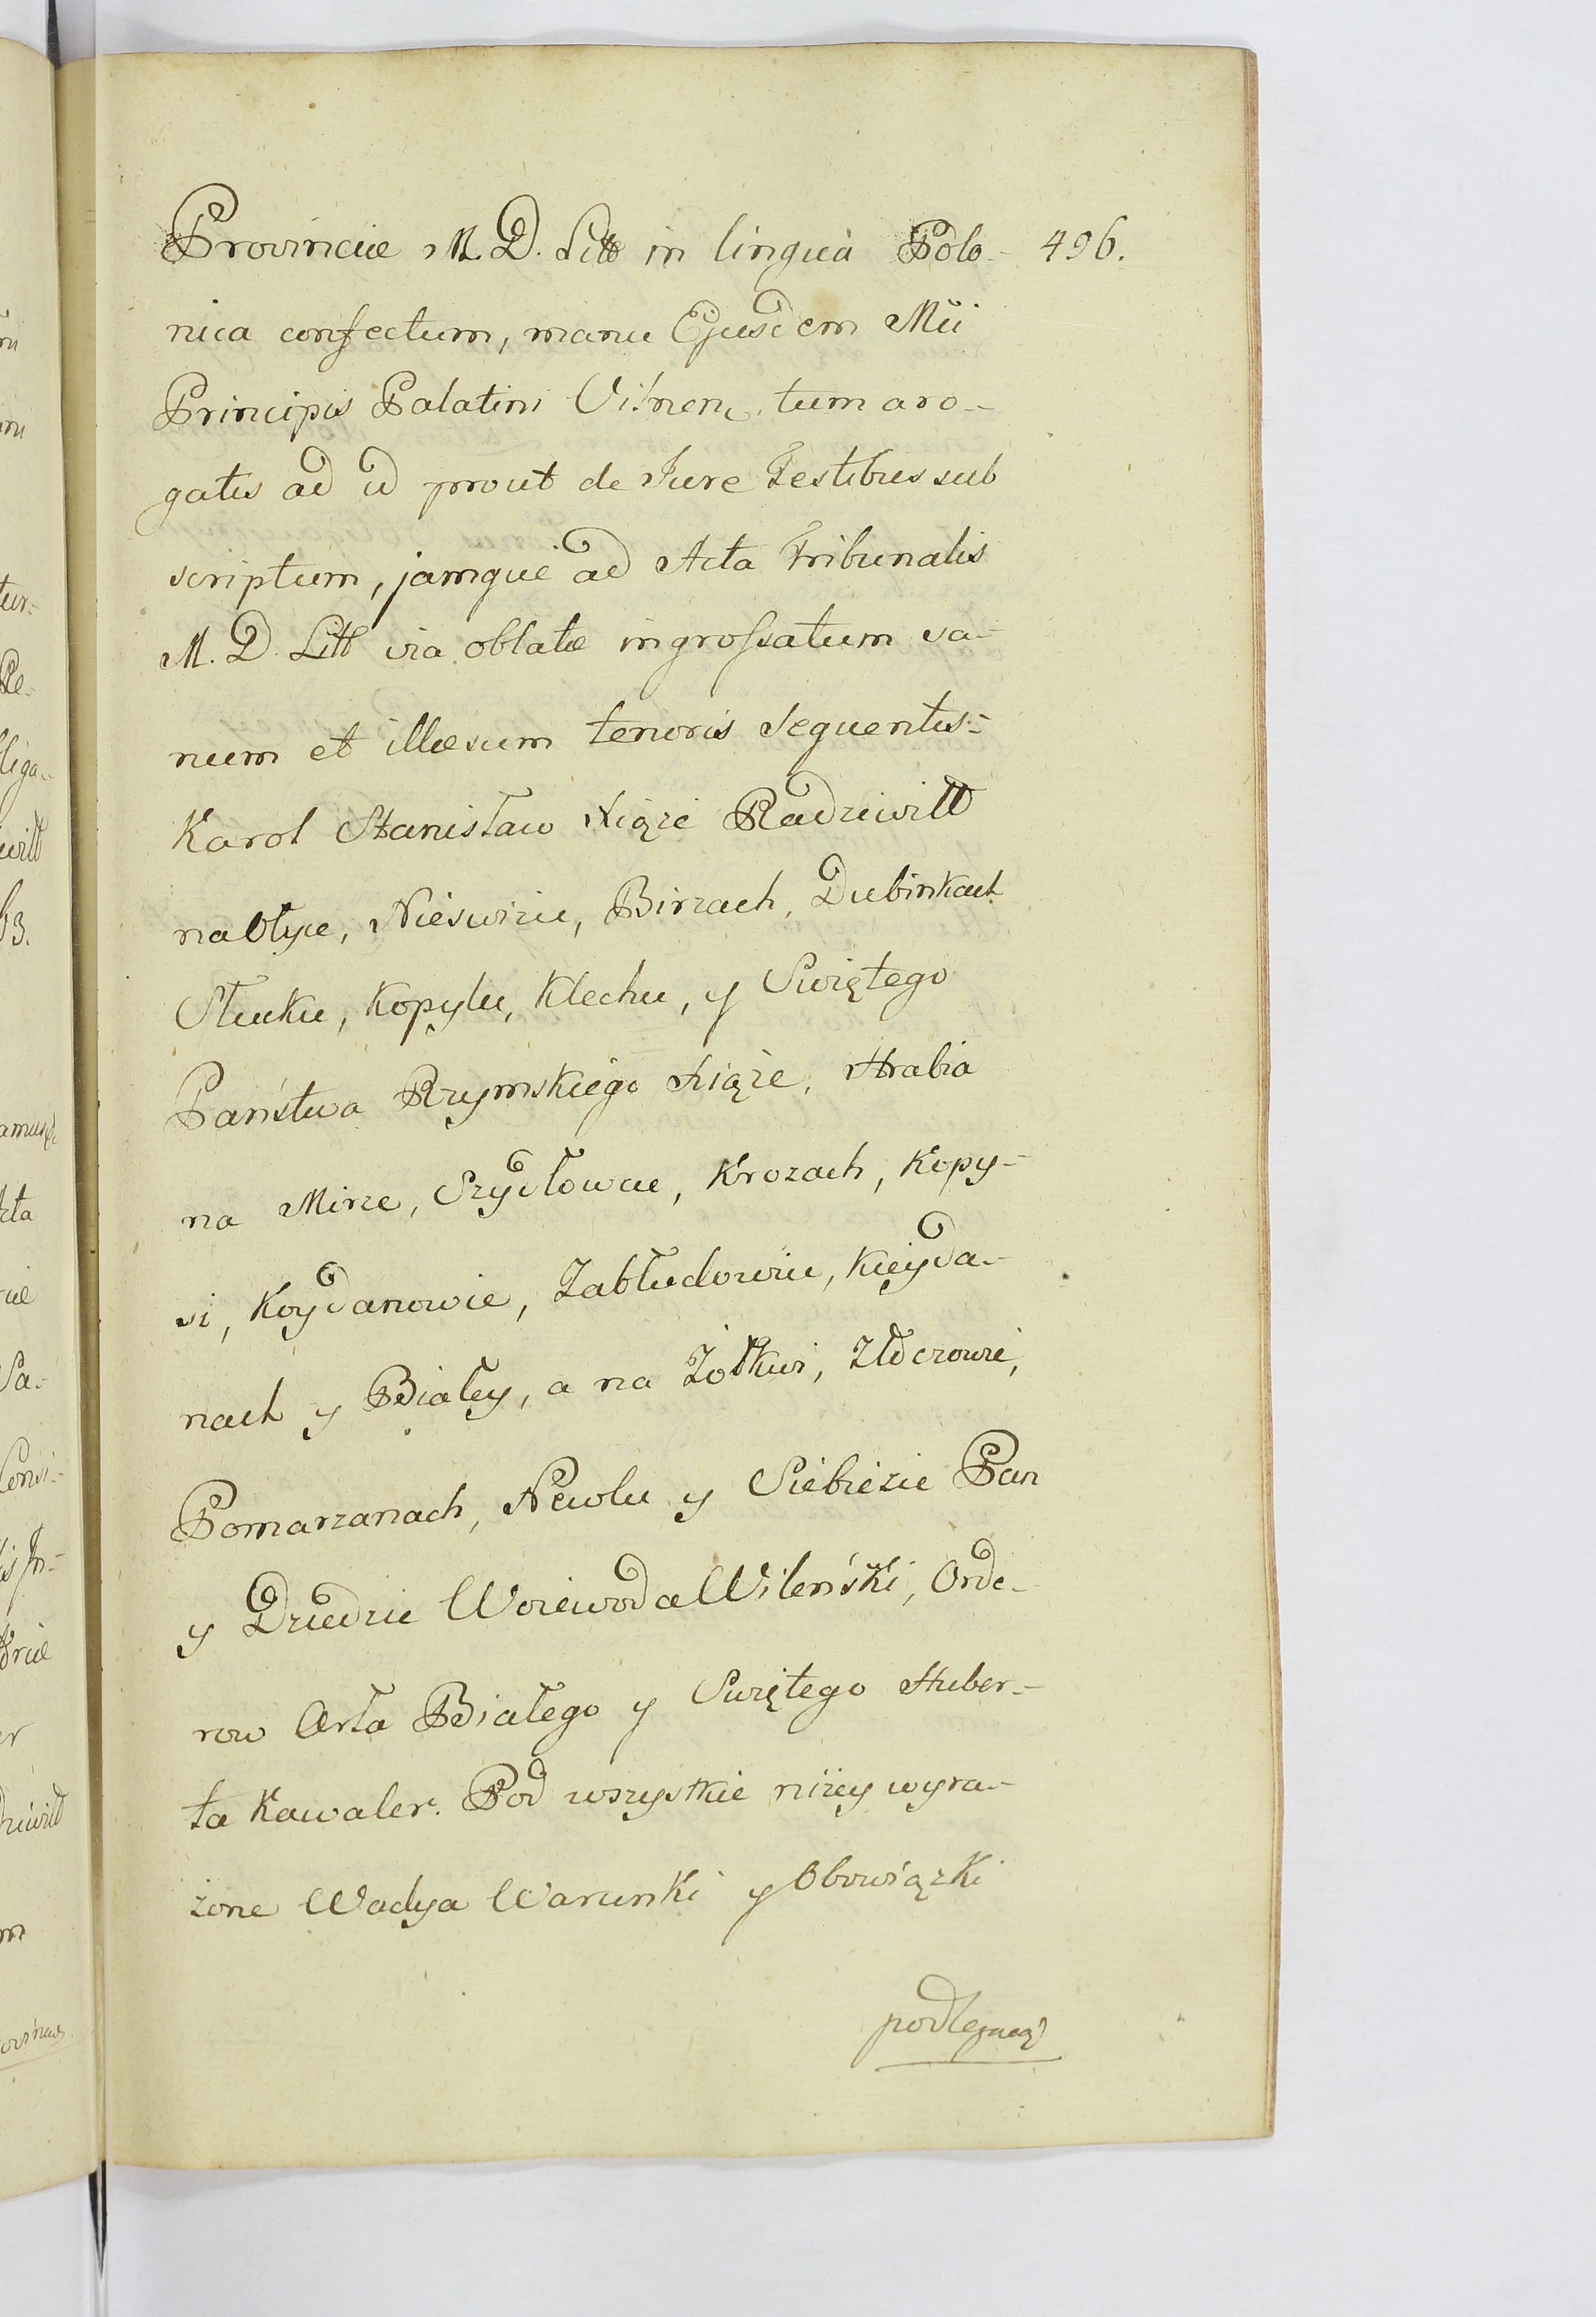 Provinciæ M. D. Litt in lingua Polo- 496.
nica confectum, manu Ejusdem Mĩi
Principis Palatini Vilnen. tum aro-
gatis ad id prout de Jure Testibus sub
scriptum, jamque ad Acta Tribunalis
M. D. Litt via oblatæ ingrossatum sa-
num et illæsum tenoris Sequentis:-
Karol Stanisław Xiąże Radziwiłł
na Ołyce, Nieświżu, Birżach, Dubinkach
Słucku, Kopylu, Klecku, y Swiętego
Państwa Rzymskiego Xiąże, Hrabia
na Mirze, Szydłowcu, Krożach, Kopy-
si, Koydanowie, Zabłudowiu, Kieyda-
nach y Białey, a na Żołkwi, Złoczowie,
Pomarzanach, Newlu y Siebieżu Pan
y Dziedzic Woiewoda Wileński, Orde-
row Orła Białego y Swiętego Huber-
ta Kawaler. Pod wszystkie niżey wyra-
żone Wadya Warunki y Obowiązki